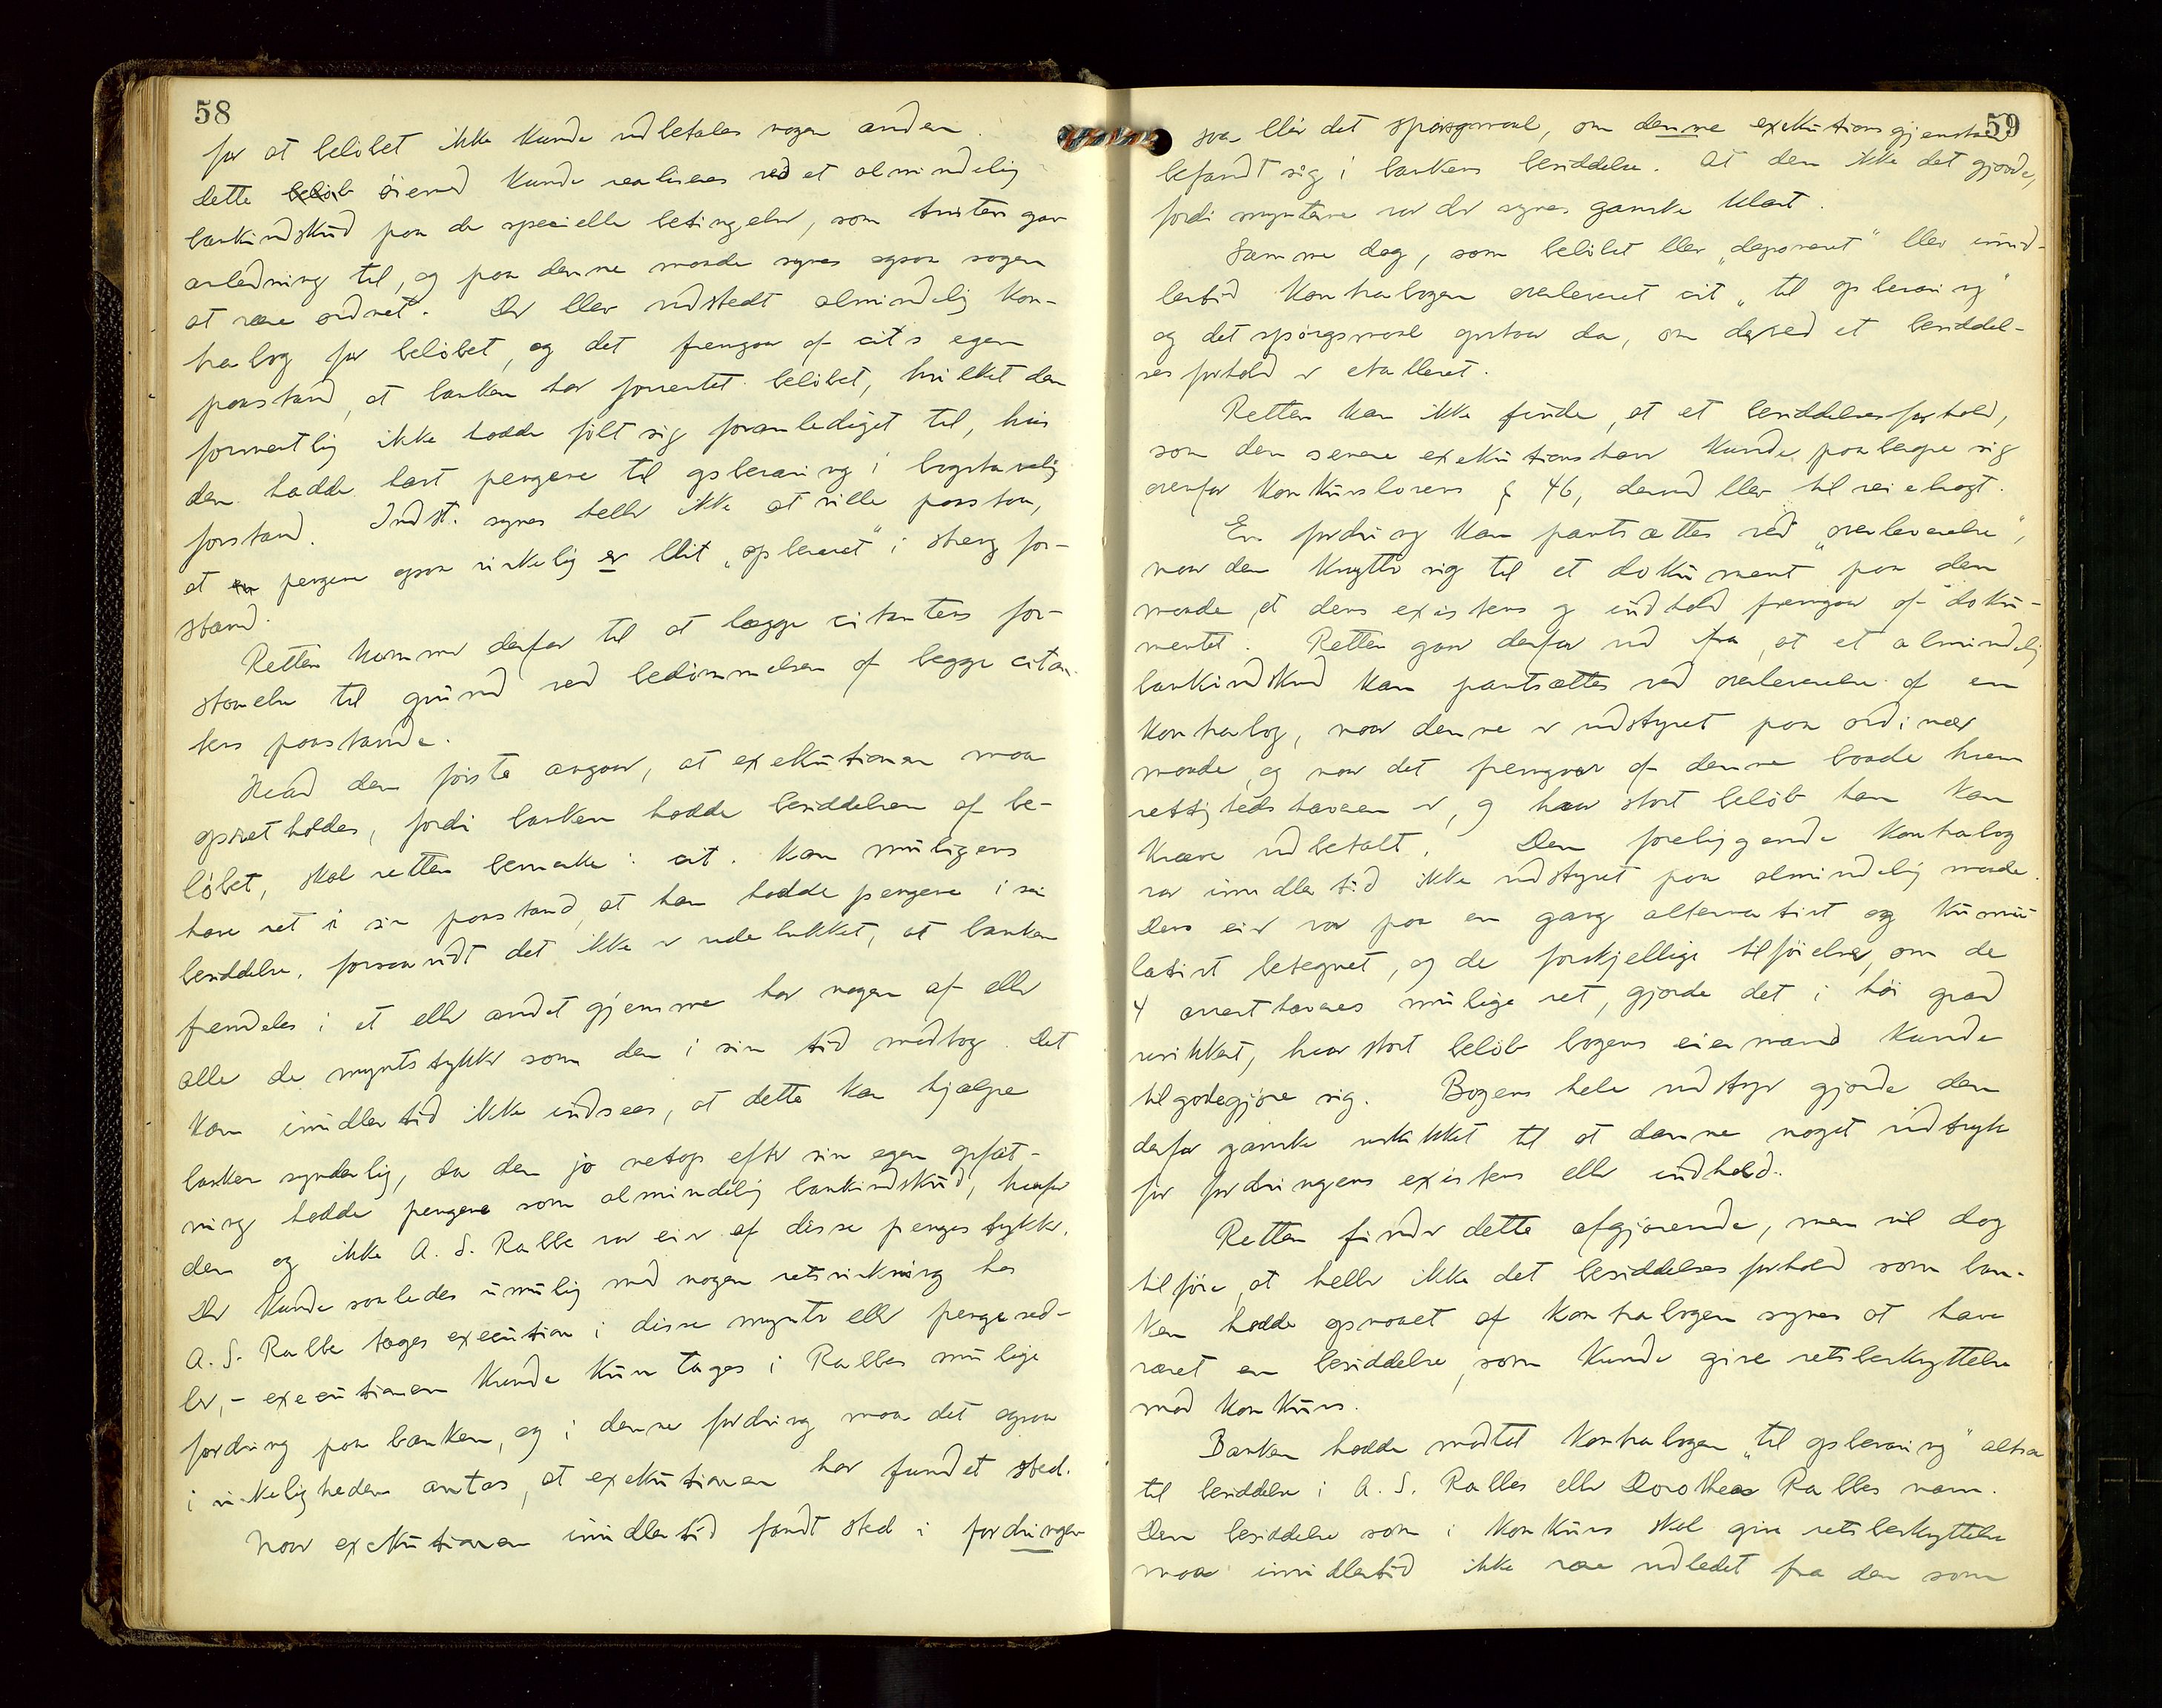 58
for at beløbet ikke kunde udbetales nogen anden.
Dette beløb øiemed kunde realiseres ved et almindelig
bankindskud paa de specielle betingelser, som tvisten gav
anledning til, og paa denne maade synes ogsaa sagen
at være ordnet. Der blev udstedt almindelig kon-
trabog for beløbet, og det fremgaar af cit's egen
paastand, at banken har forrentet beløbet, hvilket den
formentlig ikke hadde følt sig foranlediget til, hvis
den hadde havt pengene til opbevaring i bogstavelig
forstand. Indst. synes heller ikke at ville paastaa,
at pengene ogsaa virkelig er blit „opbevaret" i streng for-
stand.
Retten kommer derfor til at lægge citantens for-
staaelse til grund ved bedømmelsen af begge citan-
tens paastande.
Hvad den første angaar, at exekutionen maa
opretholdes, fordi banken hadde besiddelsen af be-
løbet, skal retten bemerke: cit. kan muligens
have ret i sin paastand, at han hadde pengene i sin
besiddelse, forsaavidt det ikke er udelukket, at banken
fremdeles i et eller andet gjemme har nogen af eller
alle de myntstykker som den i sin tid modtog. Det
kan imidlertid ikke indsees, at dette kan hjælpe
banken synderlig, da den jo netop efter sin egen opfat-
ning hadde pengene som almindelig bankindskud, hvorfor
den og ikke A. S. Rabbe var eier af disse pengestykker.
Der kunde saaledes umulig med nogen retsvirkning hos
A. S. Rabbe tages execution i disse mynter eller pengesed-
ler, - executionen kunde kun tages i Rabbes mulige
fordring paa banken, og i denne fordring maa det ogsaa
i virkeligheden antas, at exekutionen har fundet sted.
Naar exekutionen imidlertid fandt sted i fordringen
59
saa blir det spørgsmaal, om denne exekutionsgjenstand
befandt sig i bankens besiddelse. At den ikke det gjorde,
fordi mynterne var der synes ganske klart.
Samme dag, som beløbet blev „deponeret" blev imid-
lertid kontrabogen overleveret cit „til opbevaring"
og det spørgsmaal opstaar da, om derved et besiddel-
sesforhold er etableret.
Retten kan ikke finde, at et besiddelsesforhold,
som den senere exekutionshaver kunde paaberope sig
overfor konkurslovens § 46, derved blev tilveiebragt.
En fordring kan pantsættes ved „overleverelse",
naar den knytter sig til et dokument paa den
maade, at dens existens og indhold fremgaar af doku-
mentet. Retten gaar derfor ud fra, at et almindelig
bankindskud kan pantsættes ved overleverelse af en
kontrabog, naar denne er udstyret paa ordinær
maade, og naar det fremgaar af denne baade hvem
rettighedshaveren er, og hvor stort beløb han kan
kræve udbetalt. Den foreliggende kontrabog
var imidlertid ikke udstyret paa almindelig maade.
Dens eier var paa en gang alternativt og kumu-
lativt betegnet, og de forskjellige tilføielser, om de
4 arresthaveres mulige ret, gjorde det i høi grad
usikkert, hvor stort beløb bogens eiermand kunde
tilgodegjøre sig. Bogens hele udstyr gjorde den
derfor ganske uskikket til at danne noget udtryk
for fordringens existens eller indhold.
Retten finder dette afgjørende, men vil dog
tilføie, at heller ikke det besiddelsesforhold som ban-
ken hadde opnaaet af kontrabogen synes at have
været en besiddelse, som kunde give retsbeskyttelse
mod konkurs.
Banken hadde modtat kontrabogen „til opbevaring" altsaa
til besiddelse i A. S. Rabbes eller Dorothea Rabbes navn.
Den besiddelse som i konkurs skal give retsbeskyttelse
maa imidlertid ikke være udledet fra den som